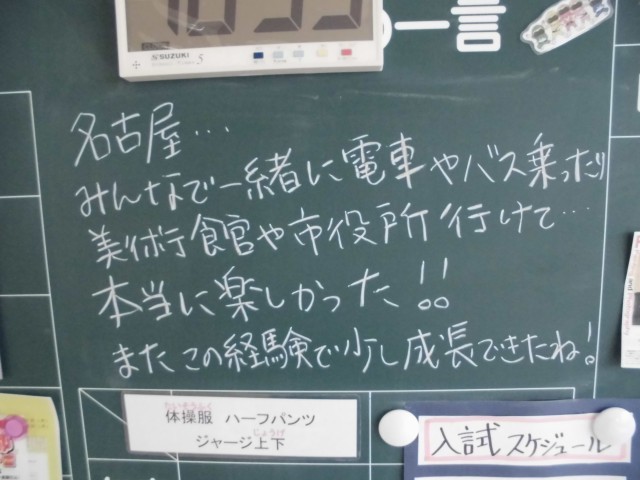 SUZUKI
5
の一言
名古屋…
みんなで一緒に電車やバス乗ったり
美術館や市役所行けて…
本当に楽しかった!!
またこの経験で少し成長できたね!
たいそうふく
体操服 ハーフパンツ
じょうげ
ジャージ上下
入試スケジュール